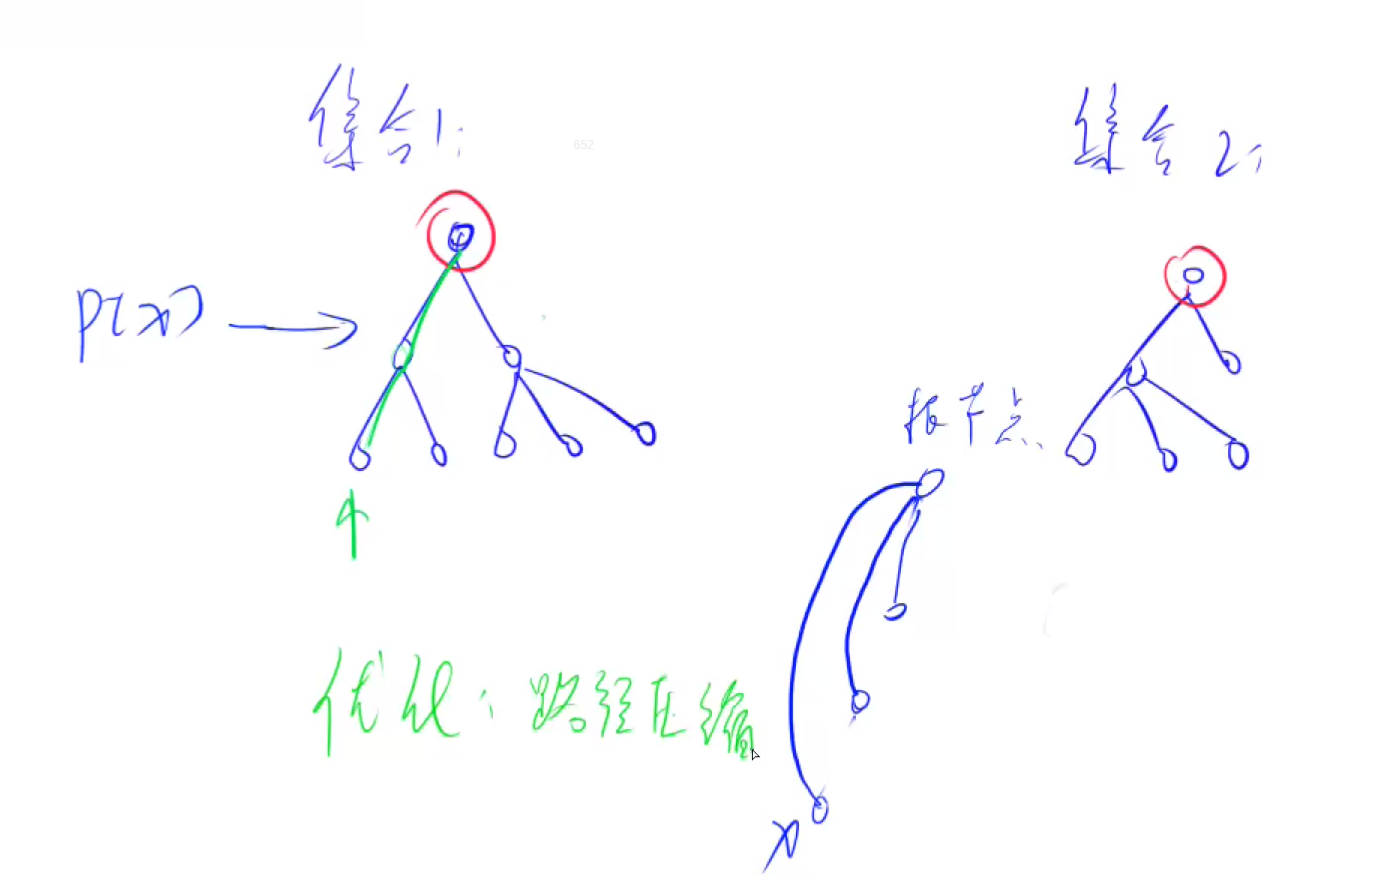 集合1:
652
集合2:
p[x]
根节点
优化:路径压缩
x